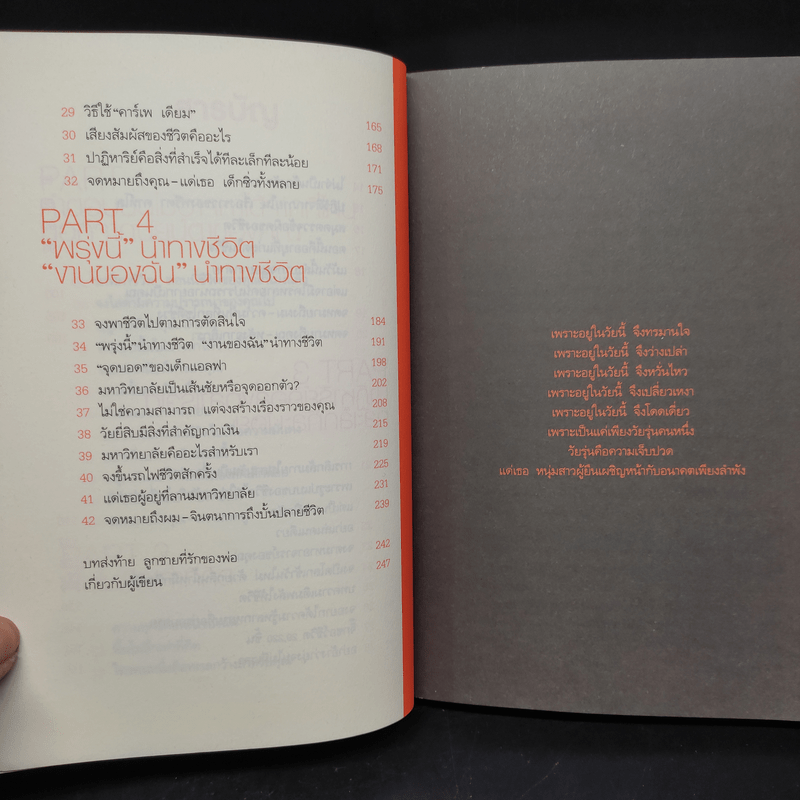 29 วิธีใช้ "คาร์เพ เดียม" 165
30 เสียงสัมผัสของชีวิตคืออะไร 168
31 ปาฏิหาริย์คือสิ่งที่สำเร็จได้ทีละเล็กทีละน้อย 171
32 จดหมายถึงคุณ-แด่เธอ เด็กซิ่วทั้งหลาย 175
PART 4
"พรุ่งนี้" นำทางชีวิต
"งานของฉัน" นำทางชีวิต
33 จงพาชีวิตไปตามการตัดสินใจ 184
34 "พรุ่งนี้" นำทางชีวิต "งานของฉัน" นำทางชีวิต 191
35 "จุดบอด" ของเด็กแอลฟา 198
36 มหาวิทยาลัยเป็นเส้นชัยหรือจุดออกตัว? 202
37 ไม่ใช่ความสามารถ แต่จงสร้างเรื่องราวของคุณ 208
38 วัยยี่สิบมีสิ่งที่สำคัญกว่าเงิน 215
39 มหาวิทยาลัยคืออะไรสำหรับเรา 219
40 จงขึ้นรถไฟชีวิตสักครั้ง 225
41 แด่เธอผู้อยู่ที่ลานมหาวิทยาลัย 231
42 จดหมายถึงผม-จินตนาการถึงบั้นปลายชีวิต 239
บทส่งท้าย ลูกชายที่รักของพ่อ 242
เกี่ยวกับผู้เขียน 247
เพราะอยู่ในวัยนี้ จึงทรมานใจ
เพราะอยู่ในวัยนี้ จึงว่างเปล่า
เพราะอยู่ในวัยนี้ จึงหวั่นไหว
เพราะอยู่ในวัยนี้ จึงเปลี่ยวเหงา
เพราะอยู่ในวัยนี้ จึงโดดเดี่ยว
เพราะเป็นแค่เพียงวัยรุ่นคนหนึ่ง
วัยรุ่นคือความเจ็บปวด
แด่เธอ หนุ่มสาวผู้ยืนเผชิญหน้ากับอนาคตเพียงลำพัง